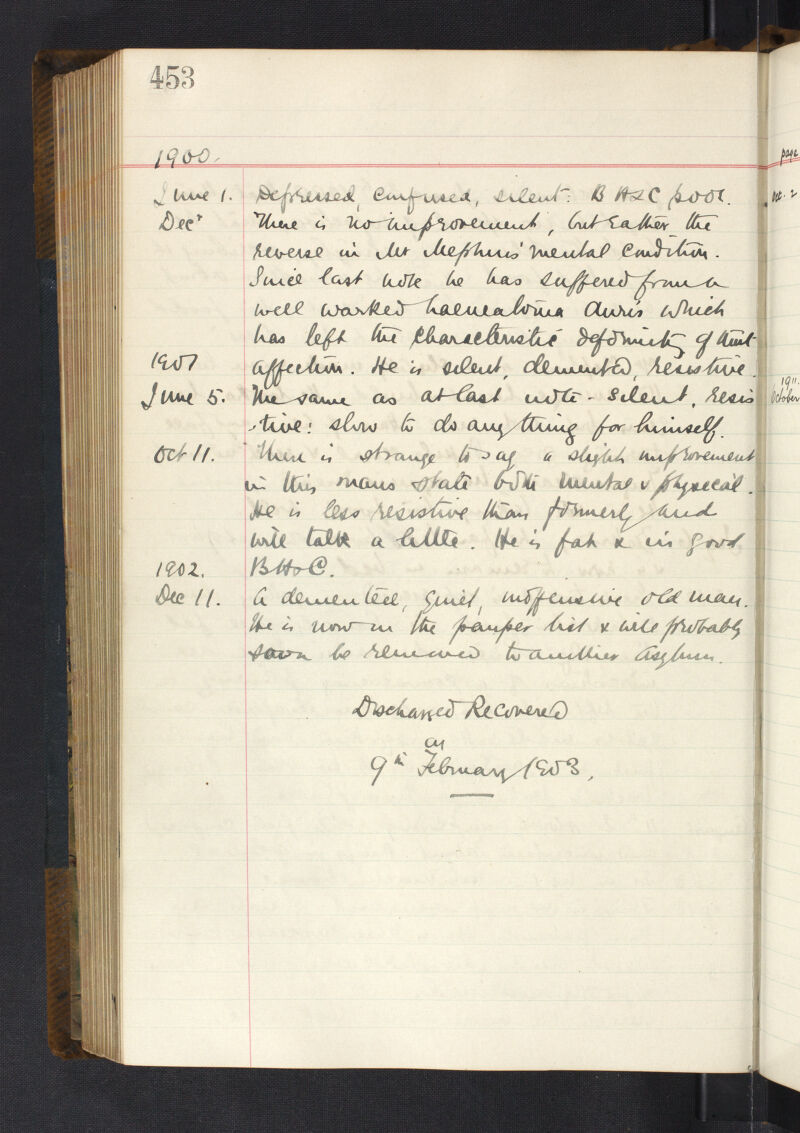 453
1900.
June 1. Depressed, confused, silent. B H & C poor.
Decr There is no improvement, but rather the
reverse in Mr mental condition.
Since last note he has suffered from a
well marked haematoma auris which
has left the characteristic deformity of that
affection. He is silent, demented, resistive.
1901
June 5. The same as at last note - silent, resis
-tive: slow to do anything for himself.
Oct 11. There is strange to say a slight improvement
in this mans state both mental & physical.
He is less resistive than formerly and
will talk a little. He is fat & in good
1902. B H & C.
Dec 11. A demented, quiet, inoffensive old man.
He is now on the pauper list & will probably
soon be removed to another Asylum.
Discharged Recovered
on
9th February 1903.
page
Oct. 2
1911.
October